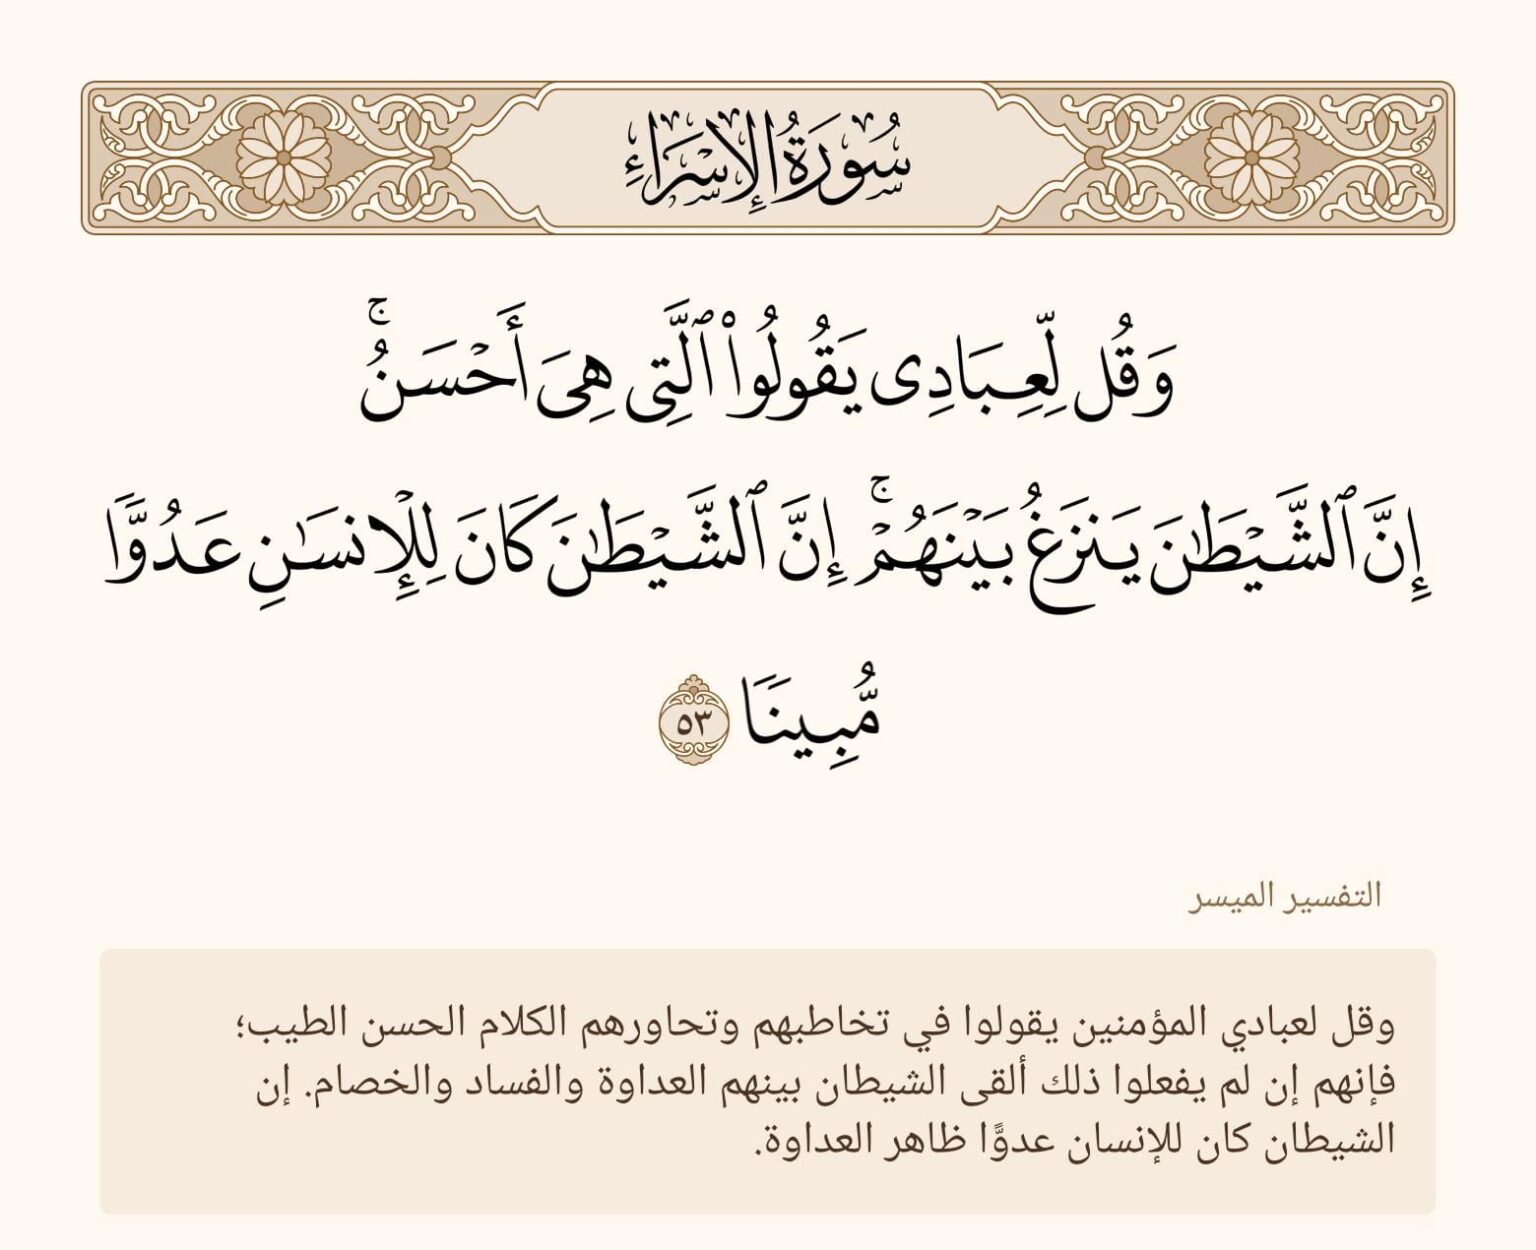 سُورَةُ الإِسْرَاءِ
وَقُل لِّعِبَادِى يَقُولُوا۟ ٱلَّتِى هِىَ أَحْسَنُ ۚ
إِنَّ ٱلشَّيْطَٰنَ يَنزَغُ بَيْنَهُمْ ۚ إِنَّ ٱلشَّيْطَٰنَ كَانَ لِلْإِنسَٰنِ عَدُوًّا
مُّبِينًا ٥٣
التفسير الميسر
وقل لعبادي المؤمنين يقولوا في تخاطبهم وتحاورهم الكلام الحسن الطيب؛
فإنهم إن لم يفعلوا ذلك ألقى الشيطان بينهم العداوة والفساد والخصام. إن
الشيطان كان للإنسان عدوًّا ظاهر العداوة.